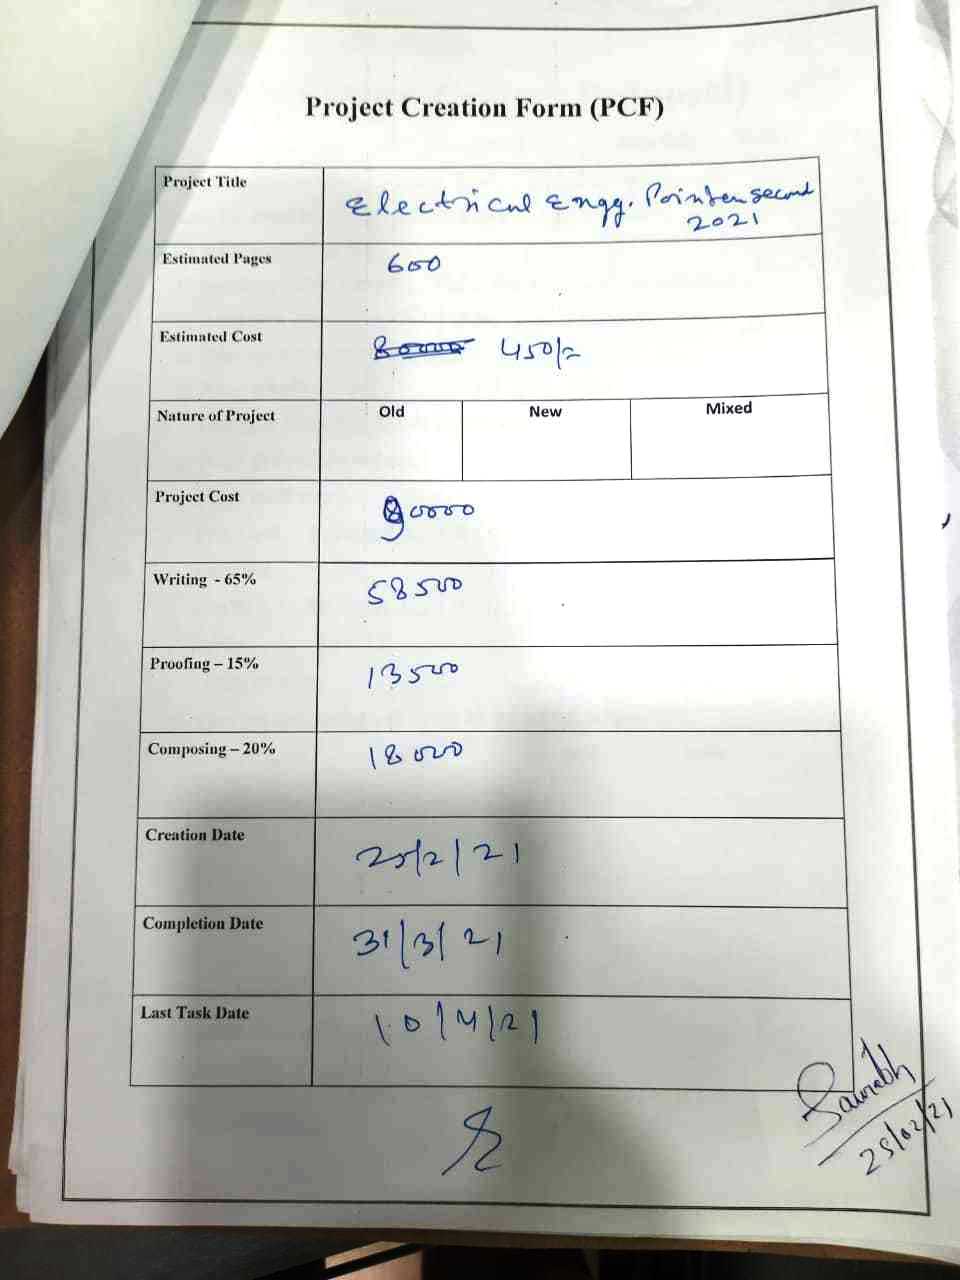 Project Creation Form (PCF)
Project Title
Electrical Engg. Pointer second
2021
Estimated Pages 600
Estimated Cost 80000 450/=
Nature of Project Old New Mixed
Project Cost 90000
Writing - 65% 58500
Proofing – 15% 13500
Composing – 20% 18000
Creation Date 25/2/21
Completion Date 31/3/21
Last Task Date 10/4/21
Saurabh
25/02/21